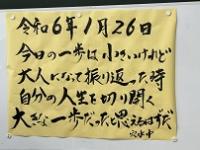 令和6年1月26日
今日の一歩は小さいけれど
大人になって振り返った時
自分の人生を切り開く
大きな一歩だったと思えるはずだ
穴水中